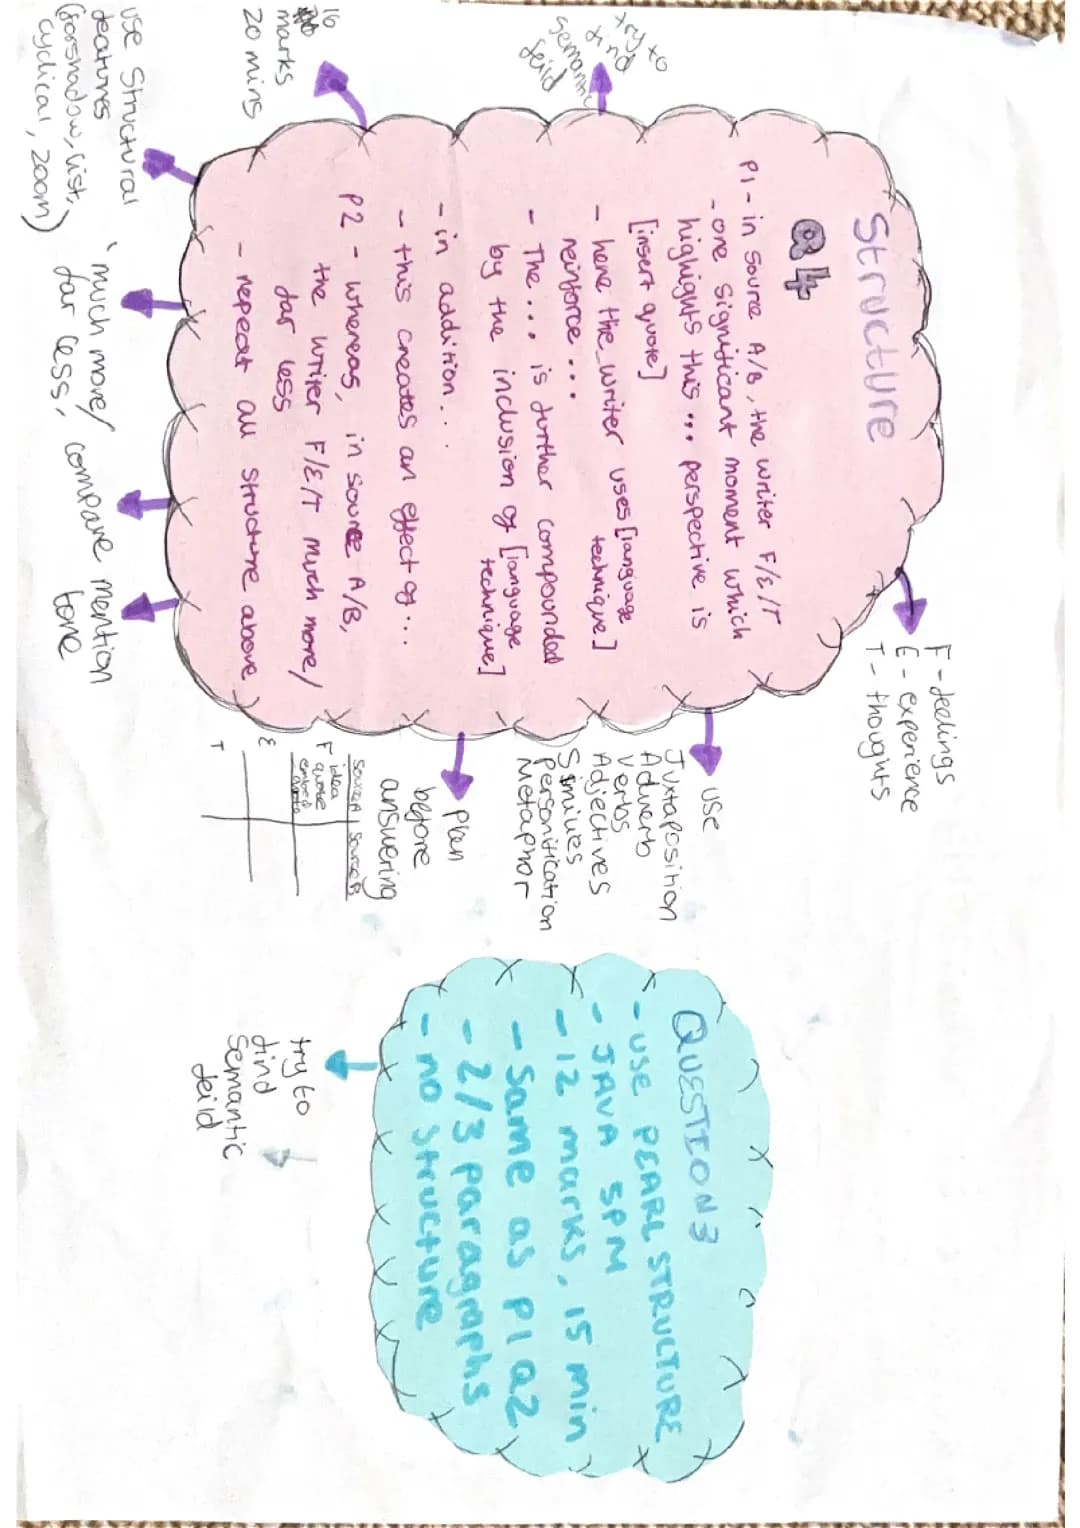 Structure
Q4
P1 - in source A/B, the writer F/E/T
- one significant moment which
highlights this ... perspective is
[insert quote]
- here the writer uses [language
technique]
reinforce ...
- The ... is further compounded
by the inclusion of [language
technique]
- in addition ...
- this creates an effect of ...
P2 - whereas, in source A/B,
the writer F/E/T much more/
far less
- repeat all structure above
F - feelings
E - experience
T - thoughts
use
Juxtaposition
Adverb
Verbs
Adjectives
Similies
Personification
Metaphor
plan
before
answering
Source A Source B
F idea
quote
E
T
try to
find
semantic
feild
16
marks
20 mins
use Structural
features
(forshadow, list,
cyclical, zoom)
'much more/
far less,
compare
mention
tone
QUESTION 3
- USE PEARL STRUCTURE
- JAVA SPM
- 12 marks, 15 min
- Same as P1 Q2
- 2/3 paragraphs
- no structure
try to
find
semantic
feild